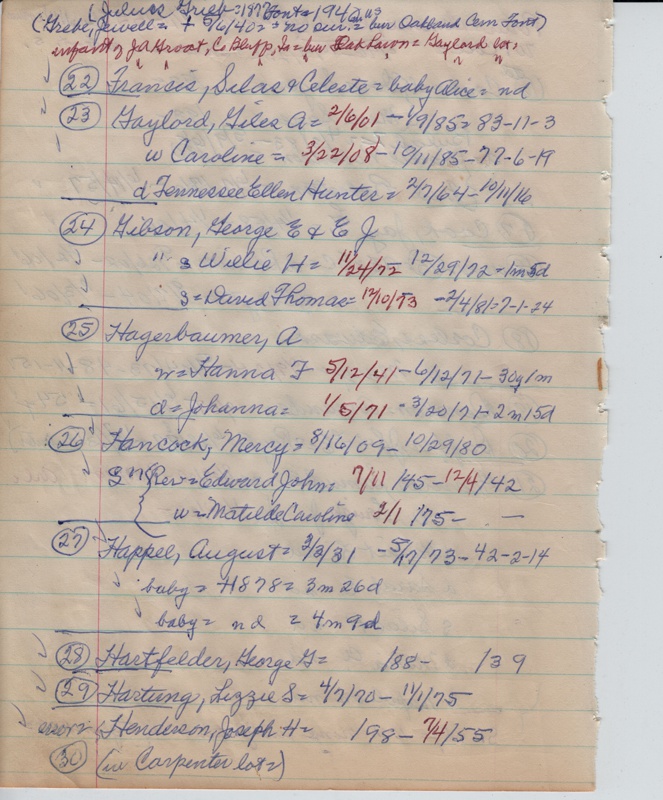 (Julius Greep = 187 Font = 194
(Grebe, Jewell = + 5/6/40 = = no sur. = bur Oakland Cem Font)
infant of J A Groat, C. Bluff, Ia = bur Oak Lawn = Gaylord lot =
(22) Francis, Silas & Celeste = baby Alice = nd
(23) Gaylord, Giles A = 2/6/01 - 1/9/85 = 83-11-3
w Caroline = 3/22/08 - 10/11/85 - 77-6-19
d Tennessee Ellen Hunter = 2/7/64 - 10/11/16
(24) Gibson, George E & E J
" s Willie H = 11/24/72 12/29/72 = 1m 5d
s = David Thomas = 12/10/73 - 2/4/81 = 7-1-24
(25) Hagerbaumer, A
w = Hanna F 5/12/41 - 6/12/71 - 30y 1m
d = Johanna = 1/5/71 - 3/20/71 - 2m 15d
(26) Hancock, Mercy = 8/16/09 - 10/29/80
Rev = Edward John = 7/11 /45 - 12/4/42
w = Matilde Caroline 2/1 /75 - —
(27) Happel, August = 3/3/31 - 5/17/73 - 42-2-14
baby = #878 = 3m 26d
baby = nd = 4m 9d
(28) Hartfelder, George G = /88 - /39
(29) Hartung, Lizzie S = 4/7/70 - 11/1/75
error = Henderson, Joseph H = /98 - 7/4/55
(30) (in Carpenter lot =)